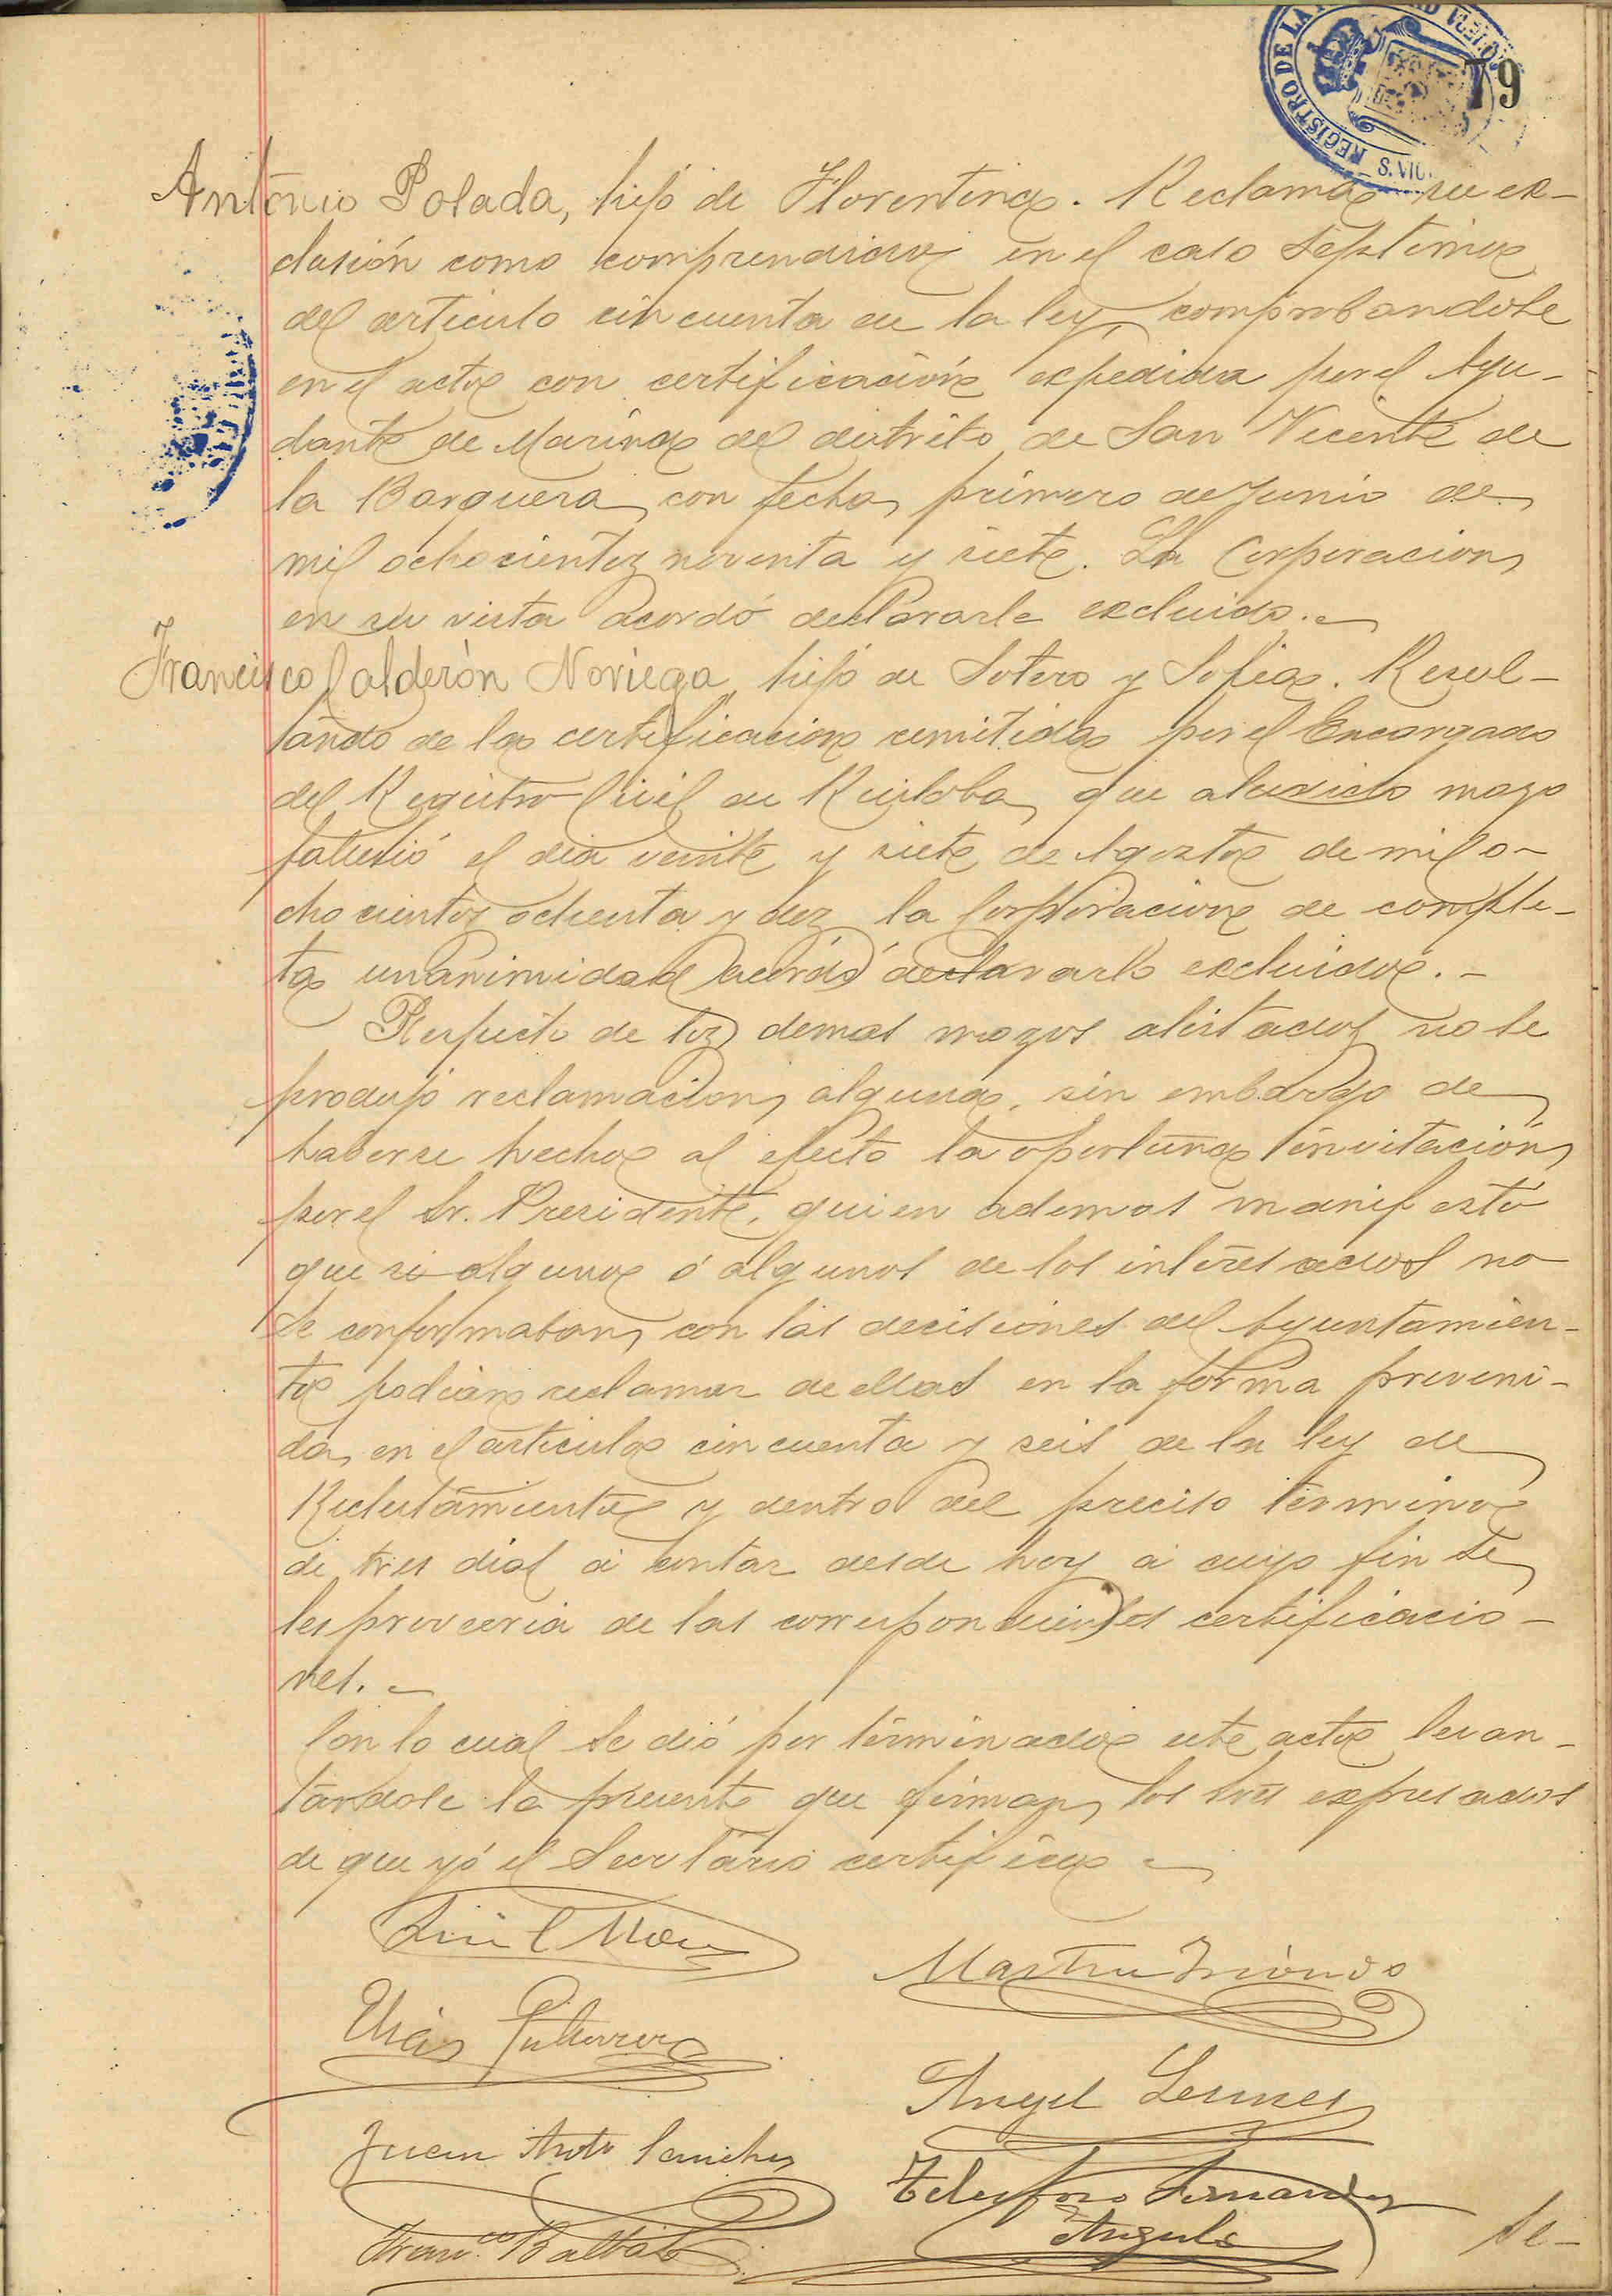 79
REGISTRO DE LA
S. VIC
Antonio Posada, hijo de Florentina. Reclama su ex-
clusión como comprendido en el caso septimo
del articulo cincuenta de la ley, comprobandose
en el acto con certificación expedida por el Ayu-
dante de Marina del distrito de San Vicente de
la Barquera con fecha primero de Junio de
mil ochocientos noventa y siete. La Corporacion
en su vista acordó declararle excluido.
Francisco Calderón Noriega hijo de Sotero y Sofia. Resul-
tando de la certificacion remitida por el Encargado
del Registro Civil de Ruiloba, que aludido mozo
falleció el dia veinte y siete de Agosto de mil o-
chocientos ochenta y dez la Corporacion de comple-
ta unanimidad acordó declararlo excluido.-
Respecto de los demas mozos alistados no se
produjo reclamacion alguna, sin embargo de
haberse hecho al efecto la oportuna invitación
por el Sr. Presidente, quien ademas manifestó
que si alguno ó algunos de los interesados no
se conformaban con las decisiones del Ayuntamien-
to podian reclamar de ellas en la forma preveni-
da en el articulo cincuenta y seis de la ley de
Reclutamiento y dentro del preciso termino
de tres dias á contar desde hoy á cuyo fin se
les proveeria de las correspondientes certificacio-
nes.
Con lo cual se dió por terminado este acto levan-
tandose la presente que firman los Sres expresados
de que yó el Secretario certifico
Martin Iriondo
Elias Gutierrez
Angel
Juan Anto Sanchez
Telesforo Fernandez
Angulo
Franco Balbás
Se-